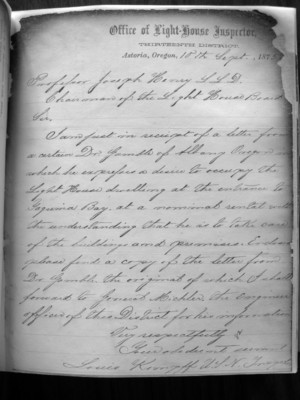 Office of Light-House Inspector,
THIRTEENTH DISTRICT,
Astoria, Oregon, 18th Sept. 187
Professor Joseph Henry L.L.D.
Chairman of the Light House Board
Sir,
I am just in receipt of a letter from
a certain Dr. of Albany Oregon in
which he expresses a desire to occupy the
Light House dwelling at the entrance to
Yaquina Bay, at a nominal rental with
the understanding that he is to take care
of the buildings and premises. Enclosed
please find a copy of the letter from
Dr. the original of which I shall
forward to General Michler the Engineer
officer of this District for his information
Very respectfully
Your obedient servant
Louis Kempff U.S.N.